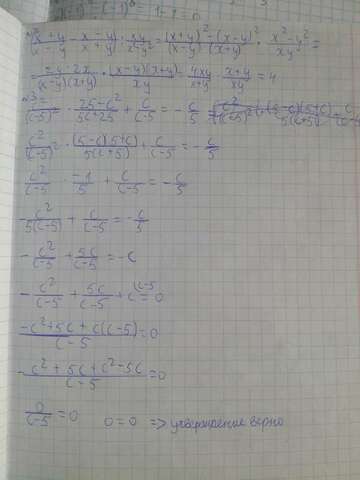 (x+y)/(x-y) - (x-y)/(x+y) · xy/(x²-y²) = ((x+y)² - (x-y)²)/((x-y)(x+y)) · (x²-y²)/xy =
= (2y·2x)/((x-y)(x+y)) · ((x-y)(x+y))/xy = 4xy/(x+y) · (x+y)/xy = 4
c²/(c-5)² · (25-c²)/(5c+25) + c/(c-5) = -c/5
c²/(c-5)² · ((5-c)(5+c))/(5(c+5)) + c/(c-5) = -c/5
c²/(c-5) · -1/5 + c/(c-5) = -c/5
-c²/(5(c-5)) + c/(c-5) = -c/5
-c²/(c-5) + 5c/(c-5) = -c
-c²/(c-5) + 5c/(c-5) + c^(c-5 = 0
(-c²+5c+c(c-5))/(c-5) = 0
(-c²+5c+c²-5c)/(c-5) = 0
0/(c-5) = 0 0=0 => утверждение верно